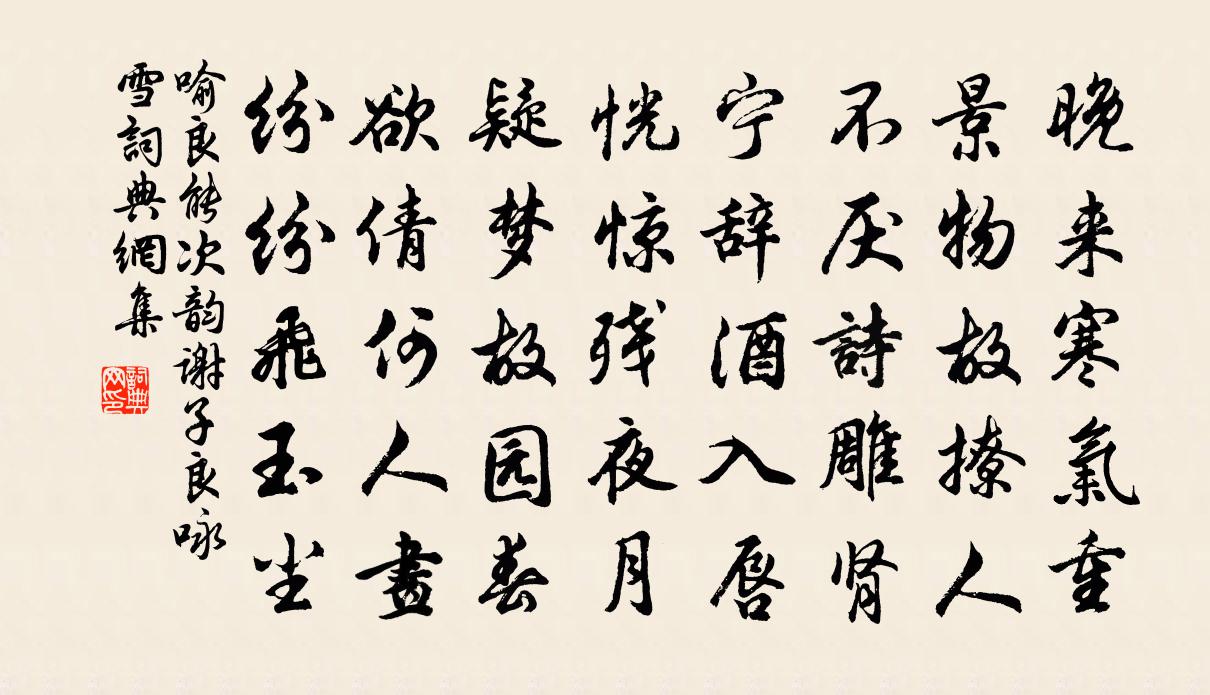 晚来寒氣重
景物故撩人
不厌詩雕肾
宁辞酒入唇
恍惊残夜月
疑梦故园春
欲倩何人畫
纷纷飛玉尘
喻良能次韵谢子良咏
雪詞典網集
詞典
网印